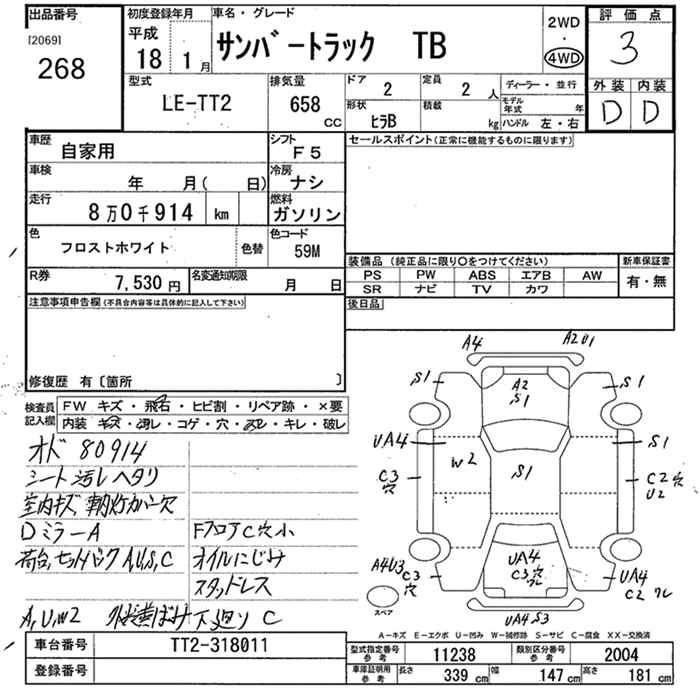 出品番号
[2069]
268
初度登録年月
平成
18 1月
車名・グレード
サンバートラック TB
2WD
・
4WD
評価点
3
外装 内装
D D
型式
LE-TT2
排気量
658
CC
ドア
2
定員
2 人
形状
ヒラB
積載
kg
ディーラー・並行
モデル年式
年
ハンドル 左・右
車歴
自家用
シフト
F5
車検
年 月( 日)
冷房
ナシ
走行
8万0千914 km
燃料
ガソリン
色
フロストホワイト
色替
色コード
59M
R券
7,530円
名変通知期限
月 日
セールスポイント(正常に機能するものに限ります)
装備品 (純正品に限り○をつけてください)
PS PW ABS エアB AW
SR ナビ TV カワ
新車保証書
有・無
後日品
注意事項申告欄(不具合内容等は具体的に記入して下さい)
修復歴 有〔箇所 〕
検査員記入欄
FW キズ・飛石・ヒビ割・リペア跡・×要
内装・キズ・汚レ・コゲ・穴・ヌレ・キレ・破レ
オド 80914
シート汚レ ヘタリ
室内キズ 車内灯カバー欠
Dミラー A
荷台, セットバック A,U,S,C
Fフロア C穴小
オイルにじみ
スタッドレス
A,U,W2
下廻り C
A4
A2U1
S1
A2
S1
S1
UA4
W2
S1
S1
C3
穴
C2穴
U2
A4U3
C3
穴
UA4
C3穴
ワレ
UA4
C2 ワレ
スペア
UA4S3
A-キズ E-エクボ U-凹み W-補修跡 S-サビ C-腐食 XX-交換済
車台番号
TT2-318011
登録番号
型式指定番号
参考
11238
類別区分番号
参考
2004
車庫証明用
参考
長さ
339 cm
幅
147 cm
高さ
181 cm